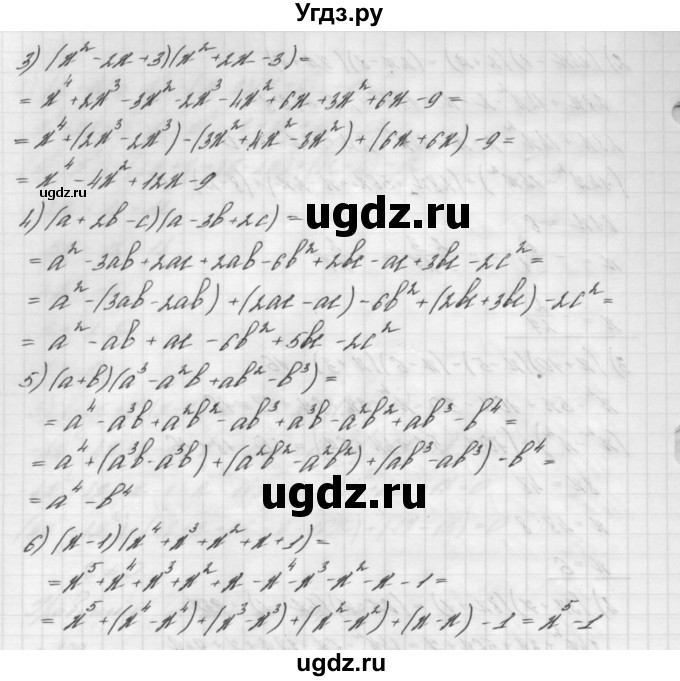 Угдз.ру
3) (x² - 2x + 3)(x² + 2x - 3) =
= x⁴ + 2x³ - 3x² - 2x³ - 4x² + 6x + 3x² + 6x - 9 =
= x⁴ + (2x³ - 2x³) - (3x² + 4x² - 3x²) + (6x + 6x) - 9 =
= x⁴ - 4x² + 12x - 9
ugdz.ru
ugdz.ru
4) (a + 2b - c)(a - 3b + 2c) =
= a² - 3ab + 2ac + 2ab - 6b² + 2bc - ac + 3bc - 2c² =
= a² - (3ab - 2ab) + (2ac - ac) - 6b² + (2bc + 3bc) - 2c² =
= a² - ab + ac - 6b² + 5bc - 2c²
5) (a + b)(a³ - a²b + ab² - b³) =
= a⁴ - a³b + a²b² - ab³ + a³b - a²b² + ab³ - b⁴ =
= a⁴ + (a³b - a³b) + (a²b² - a²b²) + (ab³ - ab³) - b⁴ =
= a⁴ - b⁴
ugdz.ru
6) (x - 1)(x⁴ + x³ + x² + x + 1) =
= x⁵ + x⁴ + x³ + x² + x - x⁴ - x³ - x² - x - 1 =
= x⁵ + (x⁴ - x⁴) + (x³ - x³) + (x² - x²) + (x - x) - 1 = x⁵ - 1
ugdz.ru